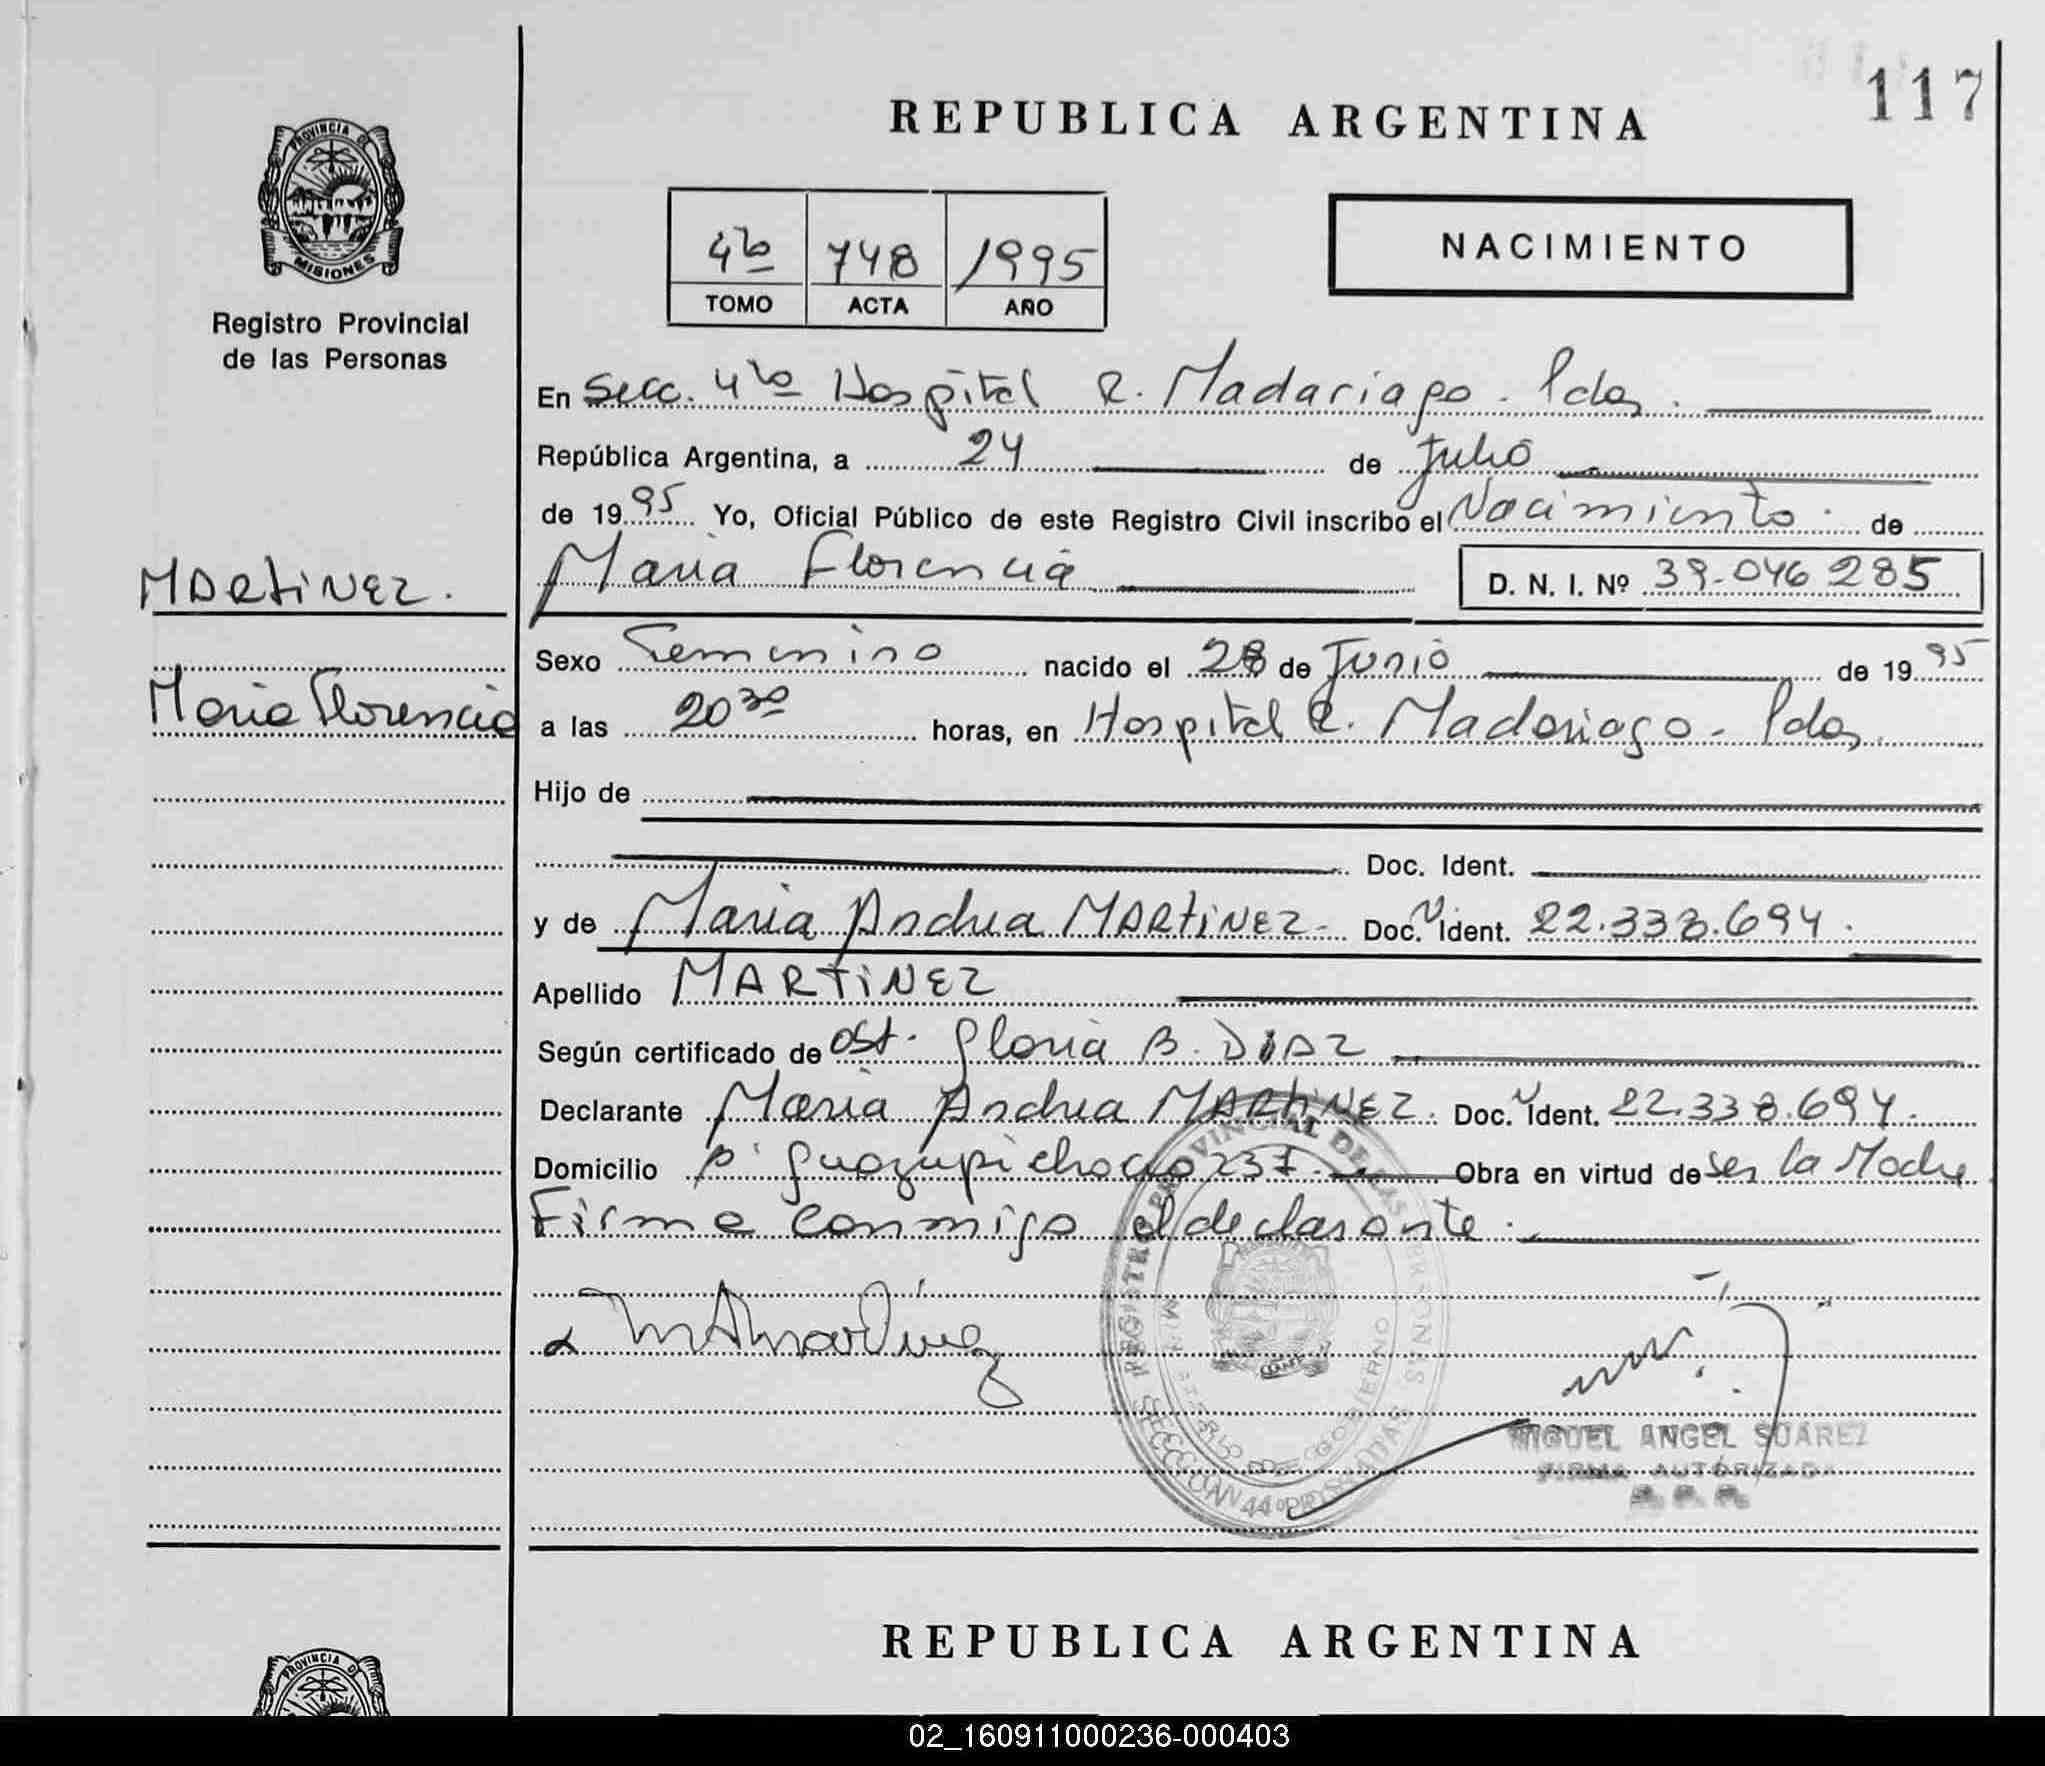 117
REPUBLICA ARGENTINA
PROVINCIA DE
MISIONES
Registro Provincial
de las Personas
4to 748 1995
TOMO ACTA AÑO
NACIMIENTO
En Secc. 4to Hospital R. Madariaga. Pdas.
República Argentina, a 24 de Julio
de 1995 Yo, Oficial Público de este Registro Civil inscribo el Nacimiento de
MARTINEZ.
Maria Florencia D. N. I. Nº 39.046 285
Sexo Femenino nacido el 28 de Junio de 1995
Maria Florencia
a las 20 30 horas, en Hospital R. Madariaga - Pdas.
Hijo de
Doc. Ident.
y de Maria Andrea MARTINEZ - Doc. Ident. 22.338.694.
Apellido MARTINEZ
Según certificado de Ost. Gloria B. DIAZ
Declarante Maria Andrea MARTINEZ. Doc. Ident. 22.338.694.
Domicilio 237. Obra en virtud de ser la Madre
Firma conmigo el declarante.
MAMartinez
REGISTRO PROVINCIAL DE LAS PERSONAS
MINISTERIO DE GOBIERNO
MIGUEL ANGEL SUAREZ
FIRMA AUTORIZADA
R. P. P.
REPUBLICA ARGENTINA
PROVINCIA DE
02_160911000236-000403